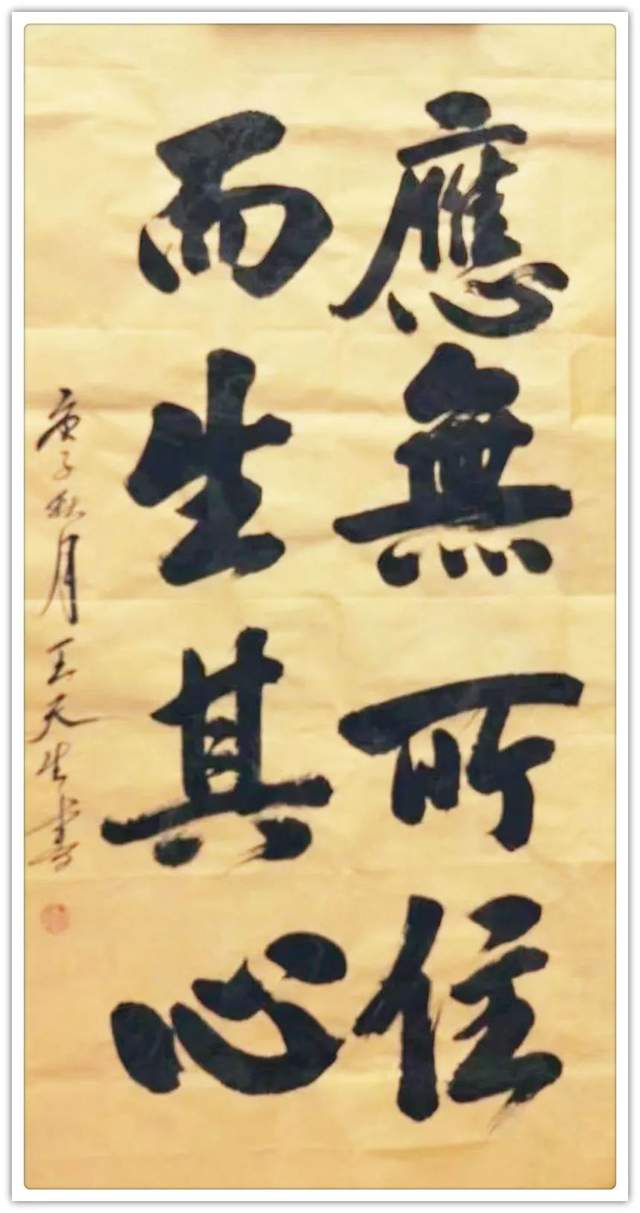 應無所住
而生其心
庚子秋月王天生書